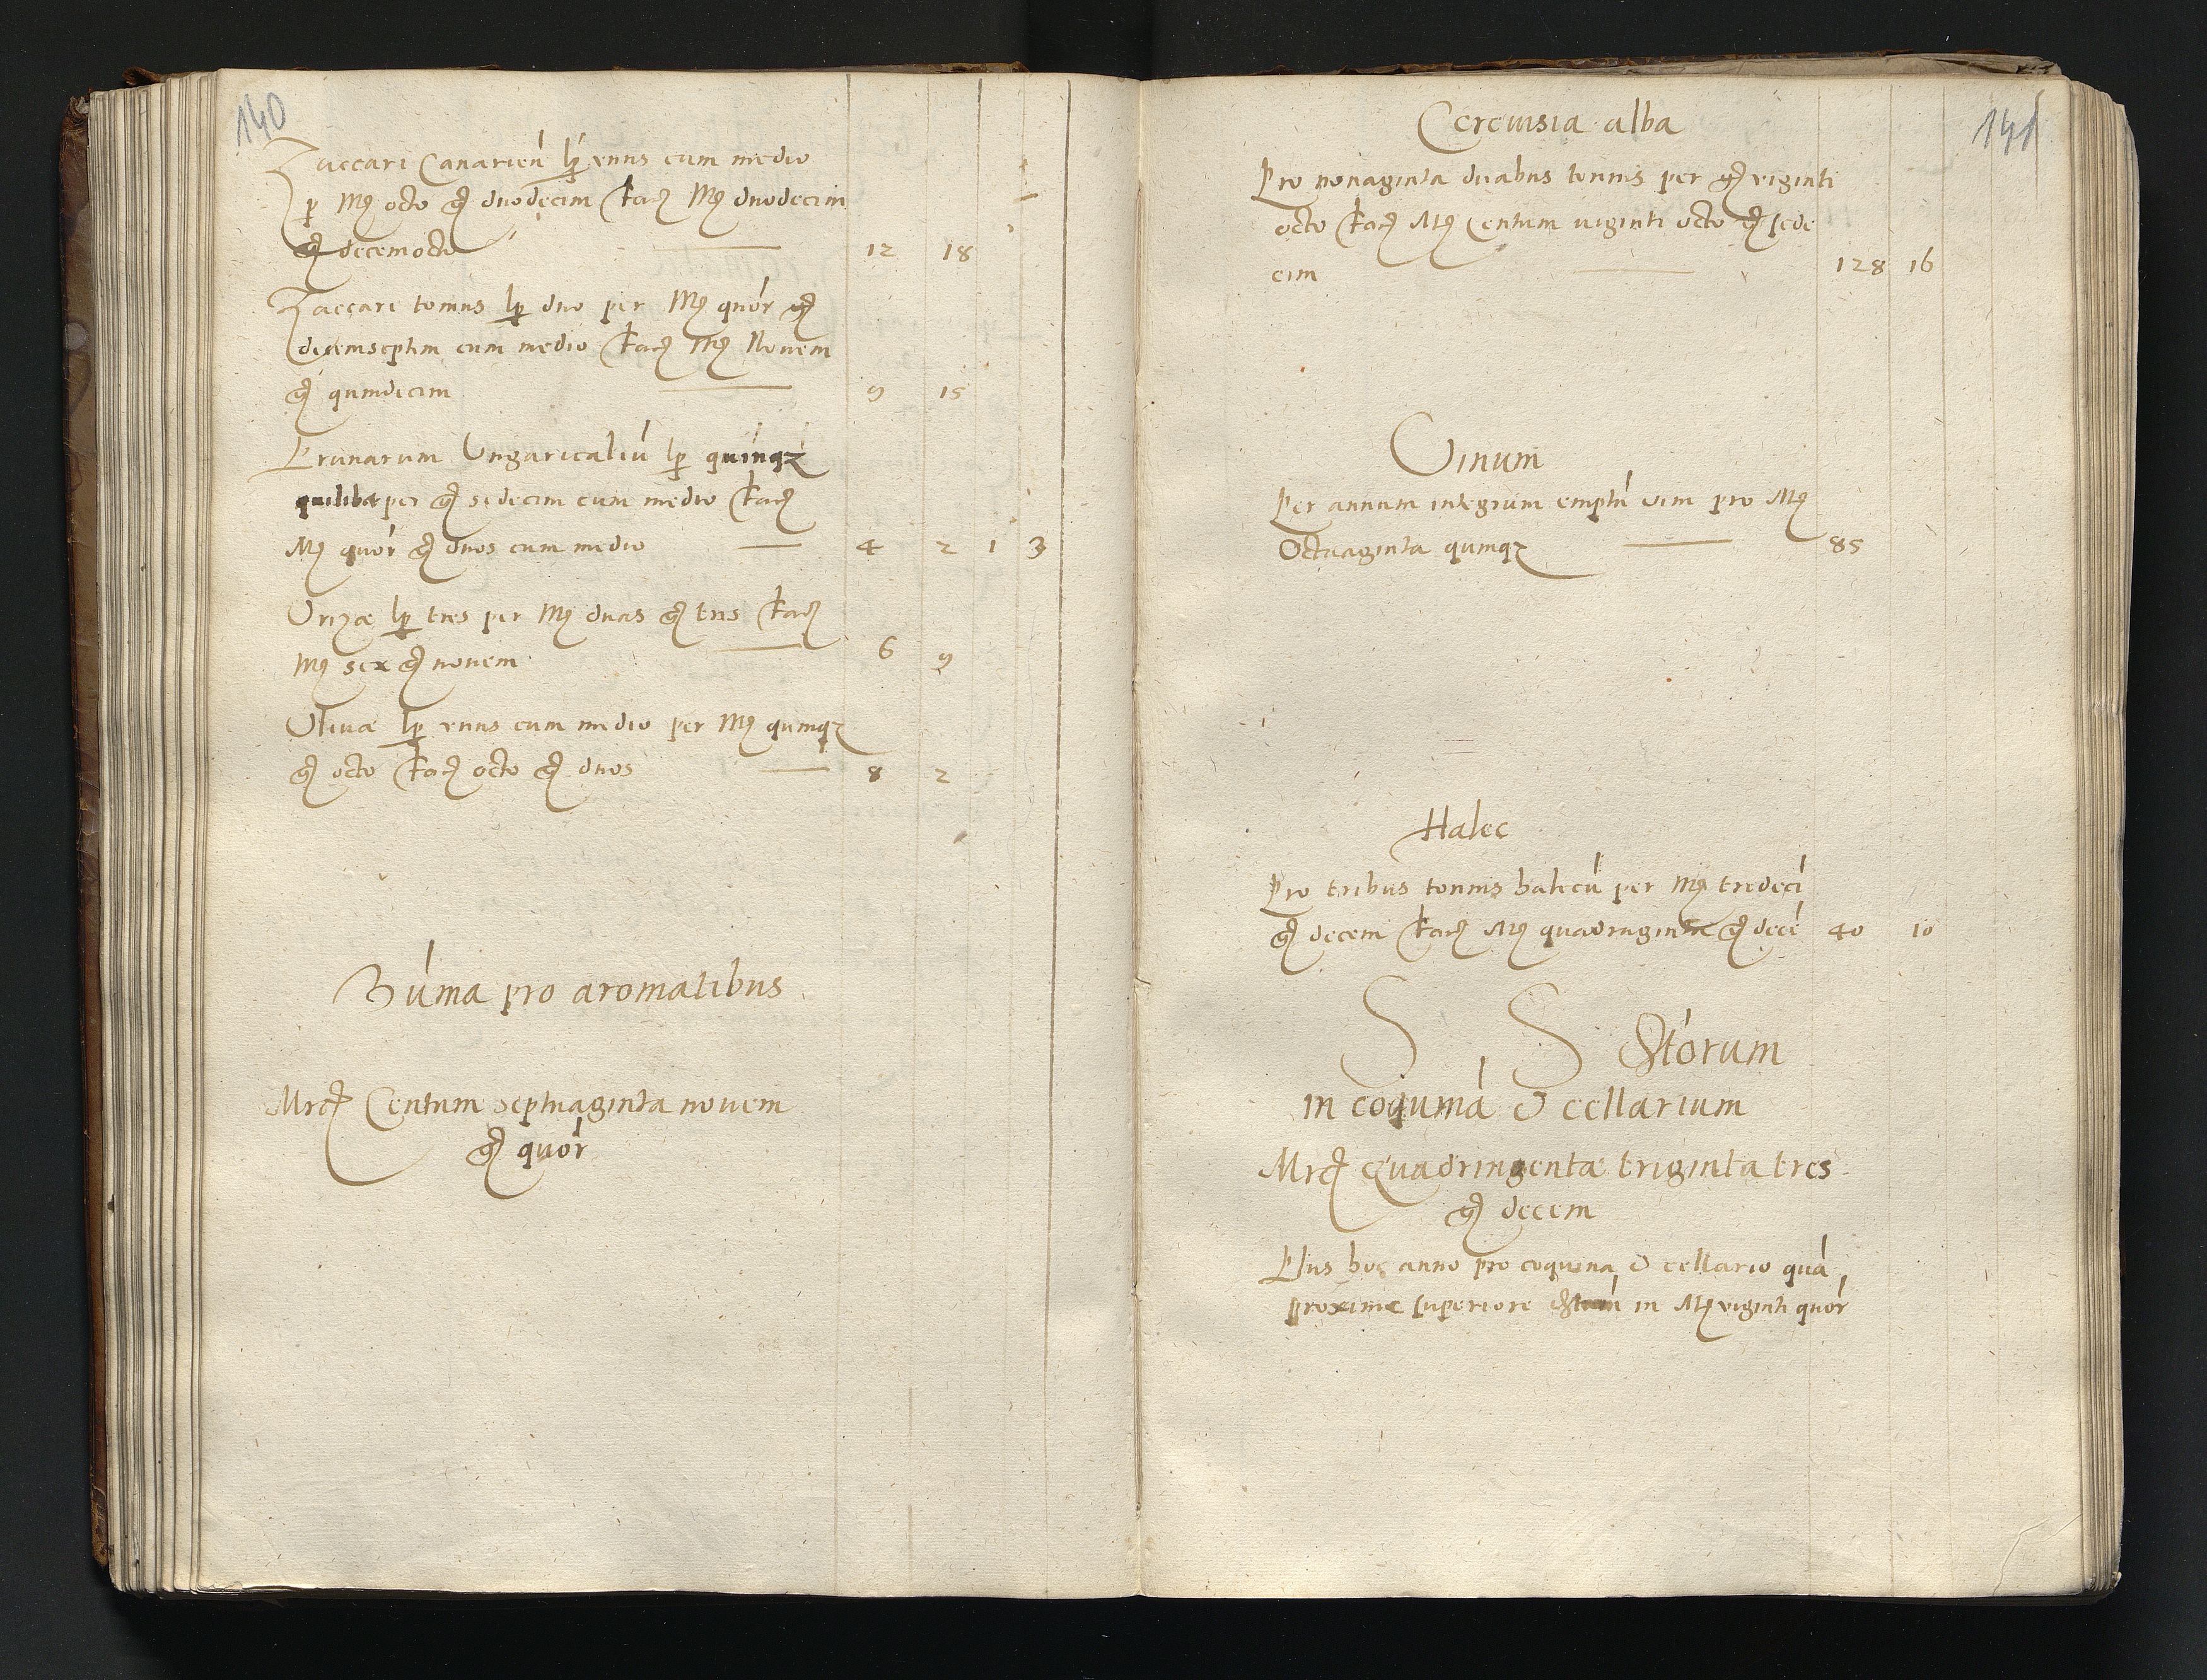 140
Zuccari Canarień lꝑ vnus cum medio
ꝑ Mꝭ octo gꝭ duodecim facꝭ Mꝭ duodecim
gꝭ decemocto — 12 18
Zaccari tomus lꝑ duo per Mꝭ quor gꝭ
decemseptm cum medio facꝭ Mꝭ Novem
gꝭ quindecim — 9 15
Prunarum Ungaricaliū lꝑ quinqꝫ
quilibet per gꝭ sedecim cum medio facꝭ
Mꝭ quor gꝭ duos cum medio — 4 2 1 3
Orizæ lꝑ tres per Mꝭ duas gꝭ tres facꝭ
Mꝭ sex gꝭ novem — 6 9
Olivæ lꝑ vnus cum medio per Mꝭ quinqꝫ
gꝭ octo facꝭ octo gꝭ duos — 8 2
Sūma pro aromatibus
Mrcꝭ Centum septuaginta novem
gꝭ quor
141
Cerevisia alba
Pro nonaginta duabus tonnis per gꝭ viginti
octo facꝭ Mꝭ Centum viginti octo gꝭ sede
cim — 128 16
Vinum
Per annum integrum emptū vini pro Mꝭ
Octuaginta quinqꝫ — 85
Halec
Pro tribus tonnis halecū per Mꝭ tredecī
gꝭ decem facꝭ Mꝭ quadraginta gꝭ decē 40 10
S S Exptorum
in coquinā & cellarium
Mrcꝭ Quadringentæ triginta tres
gꝭ decem
Plus hoc anno pro coquina & cellario quā
proxime superiore in Mꝭ viginti quor